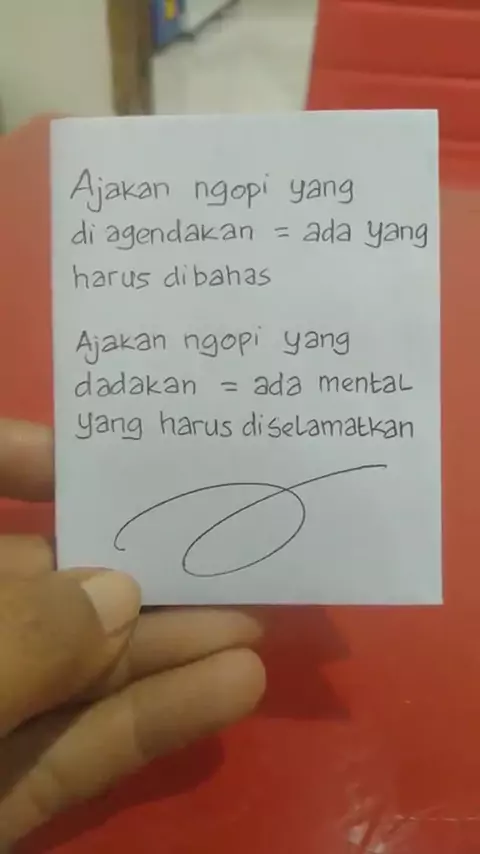 Ajakan ngopi yang
di agendakan = ada yang
harus dibahas
Ajakan ngopi yang
dadakan = ada mental
yang harus diselamatkan